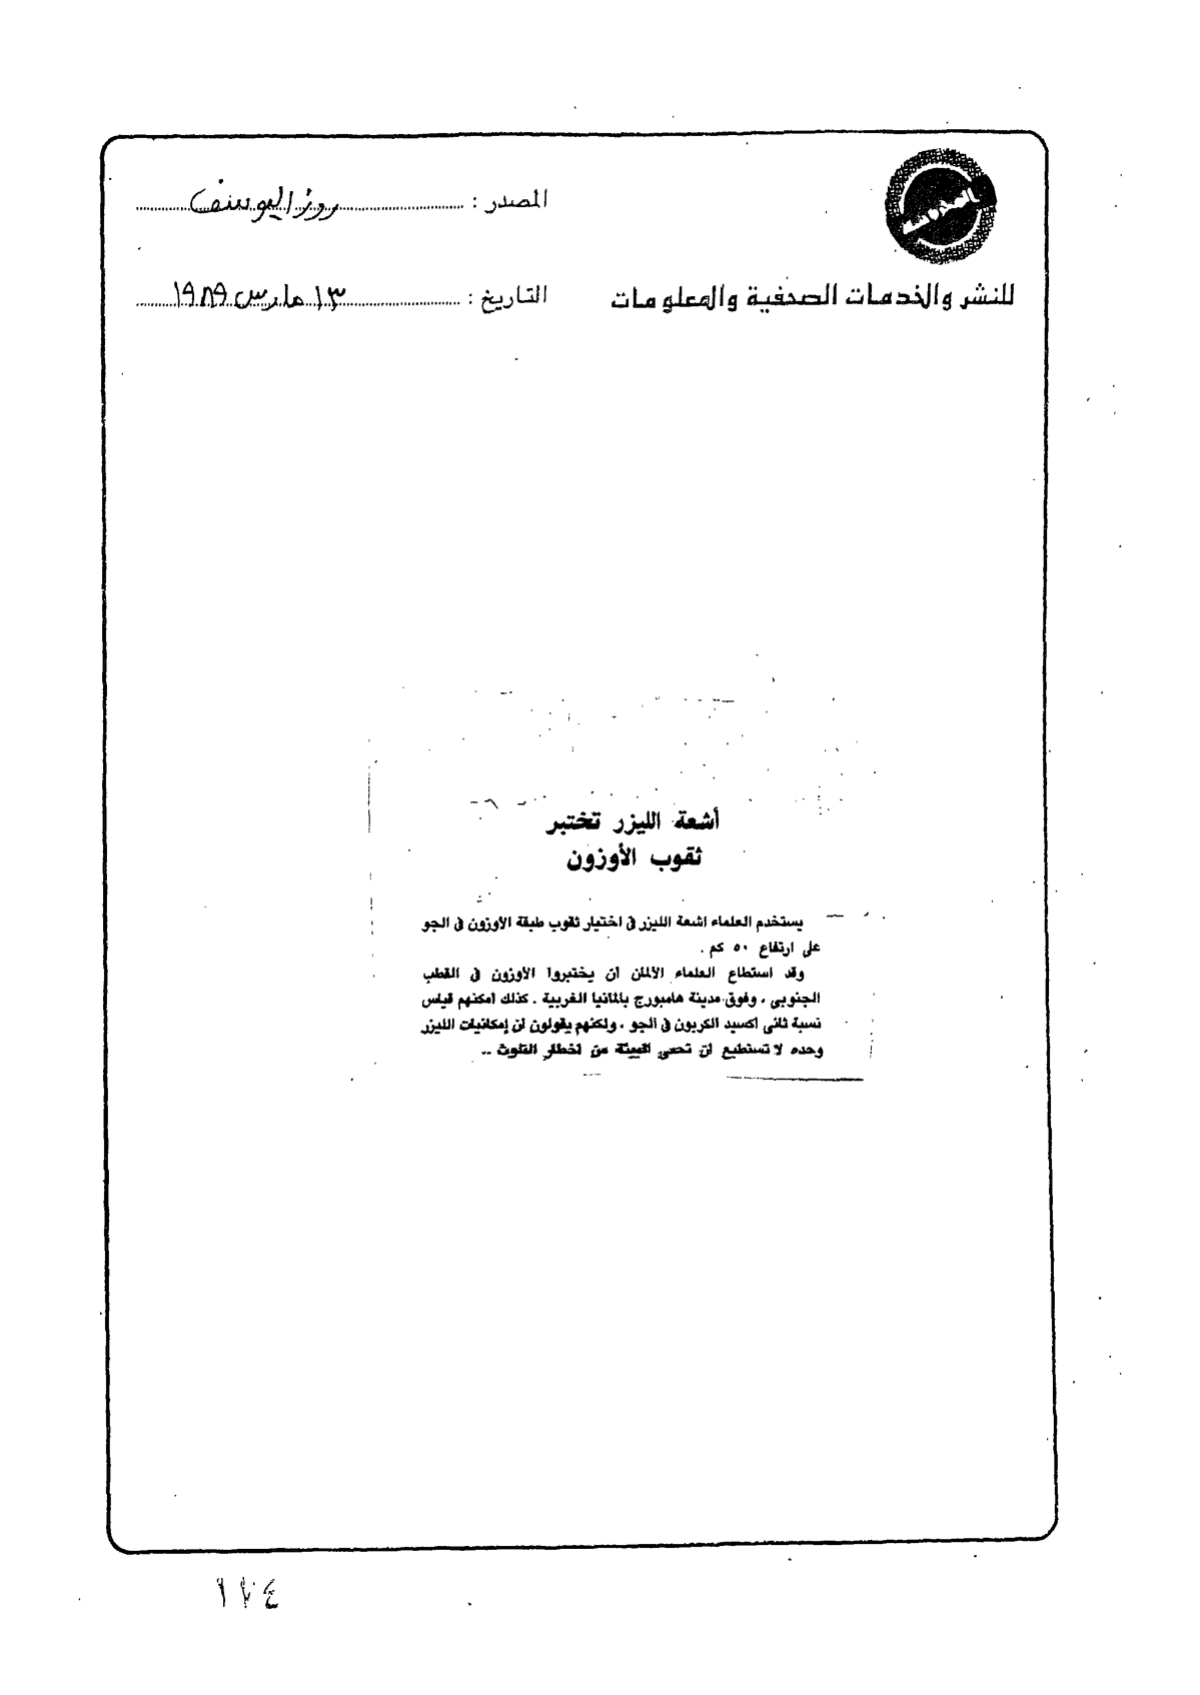 المصدر : روز اليوسف
للنشر والخدمات الصحفية والمعلومات
التاريخ : ١٣ مارس ١٩٨٩
أشعة الليزر تختبر
ثقوب الأوزون
يستخدم العلماء اشعة الليزر فى اختبار ثقوب طبقة الأوزون فى الجو
على ارتفاع ٥٠ كم .
وقد استطاع العلماء الألمان ان يختبروا الأوزون فى القطب
الجنوبى ، وفوق مدينة هامبورج بالمانيا الغربية . كذلك امكنهم قياس
نسبة ثانى اكسيد الكربون فى الجو ، ولكنهم يقولون ان إمكانيات الليزر
وحده لا تستطيع ان تحمى البيئة من اخطار التلوث ..